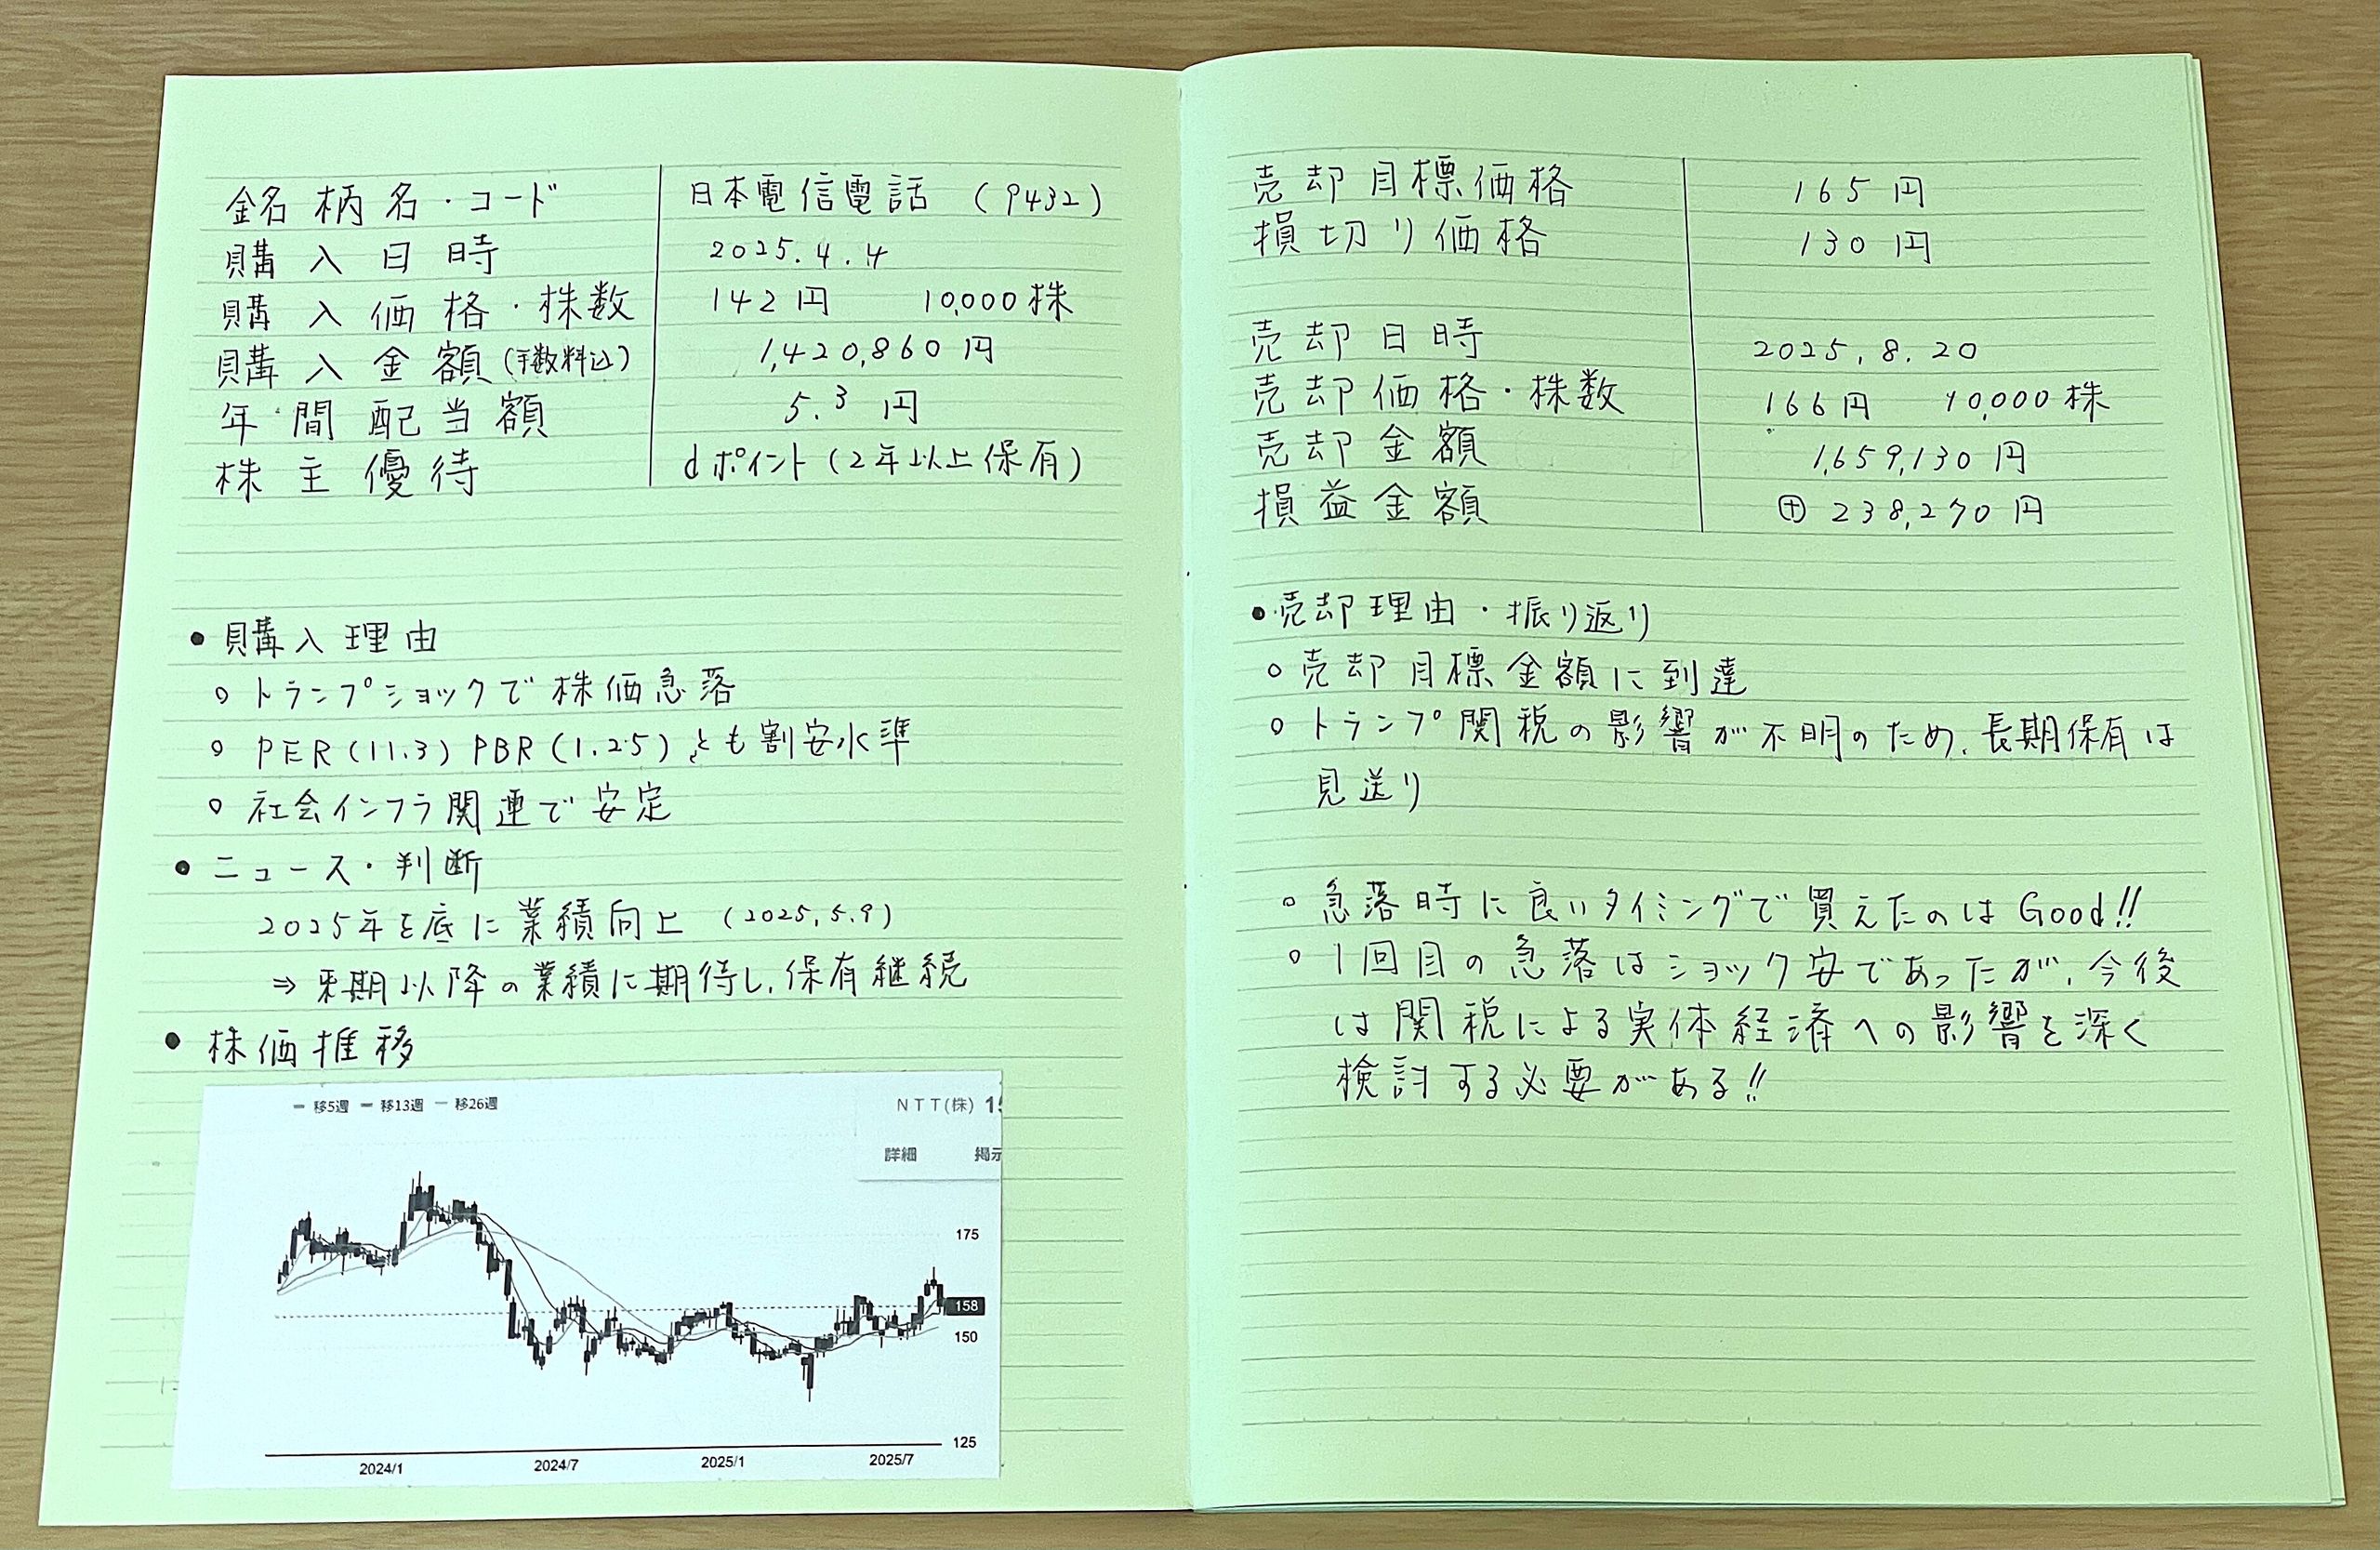 銘柄名・コード 日本電信電話 (9432)
購入日時 2025.4.4
購入価格・株数 142円 10,000株
購入金額(手数料込) 1,420,860円
年間配当額 5.3円
株主優待 dポイント(2年以上保有)
● 購入理由
○ トランプショックで株価急落
○ PER(11.3) PBR(1.25)とも割安水準
○ 社会インフラ関連で安定
● ニュース・判断
2025年を底に業績向上 (2025.5.9)
⇒ 来期以降の業績に期待し、保有継続
● 株価推移
移5週 移13週 移26週
NTT(株)
詳細
175
158
150
125
2024/1 2024/7 2025/1 2025/7
売却目標価格 165円
損切り価格 130円
売却日時 2025.8.20
売却価格・株数 166円 10,000株
売却金額 1,659,130円
損益金額 ⊕ 238,270円
● 売却理由・振り返り
○ 売却目標金額に到達
○ トランプ関税の影響が不明のため、長期保有は
見送り
○ 急落時に良いタイミングで買えたのはGood!!
○ 1回目の急落はショック安であったが、今後
は関税による実体経済への影響を深く
検討する必要がある!!